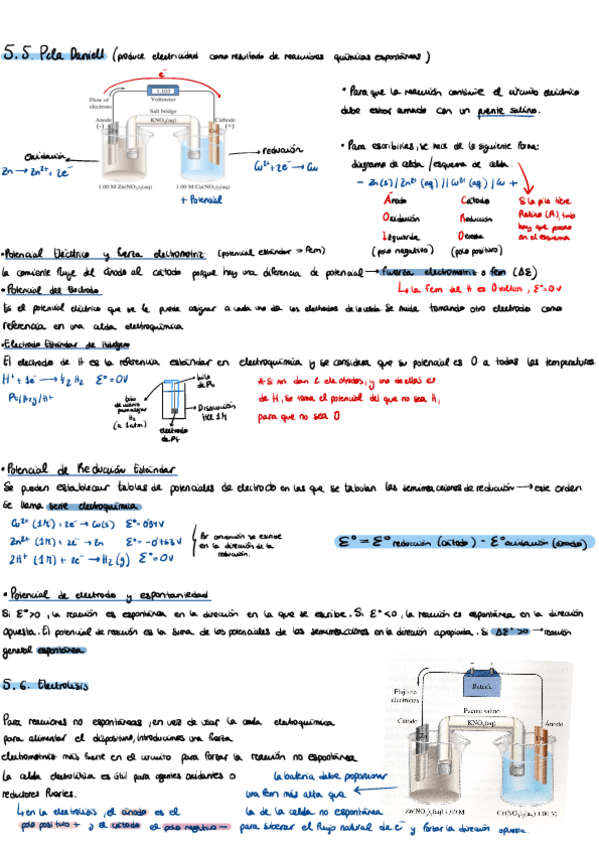 5.5. Pila Daniell (produce electricidad como resultado de reacciones químicas espontáneas)
e-
1.103
Voltmeter
Flow of
electrons
Salt bridge
KNO3(aq)
Anode
(-)
Cathode
(+)
Zn
Cu
oxidación
Zn → Zn2+ + 2e-
reducción
Cu2+ + 2e- → Cu
1.00 M Zn(NO3)2(aq)
1.00 M Cu(NO3)2(aq)
+ Potencial
• Para que la reacción continúe el circuito eléctrico
debe estar armado con un puente salino.
• Para escribirlas, se hace de la siguiente forma:
diagrama de celda / esquema de celda.
- Zn(s) / Zn2+ (aq) || Cu2+ (aq) / Cu +
Ánodo
Oxidación
Izquierda
(polo negativo)
Cátodo
Reducción
Derecha
(polo positivo)
Si la pila tiene
Platino (Pt), también
hay que ponerlo
en el esquema
• Potencial Eléctrico y fuerza electromotriz (potencial estándar = fem)
la corriente fluye del ánodo al cátodo porque hay una diferencia de potencial → fuerza electromotriz o fem (ΔE)
↳ la fem del H es 0 voltios, E°=0V
• Potencial del Electrodo
Es el potencial eléctrico que se le puede asignar a cada uno de los electrodos de la celda. Se mide tomando otro electrodo como
referencia en una celda electroquímica
• Electrodo Estándar de Hidrógeno
El electrodo de H es la referencia estándar en electroquímica y se considera que su potencial es 0 a todas las temperaturas.
H+ + 1e- → 1/2 H2 E°=0V
Pt/H2g/H+
tubo
de vidrio
para alojar
H2
(a 1atm)
hilo
de Pt
Disolución
HCl 1M
electrodo
de Pt
* Si nos dan 2 electrodos, y uno de ellos es
de H, se toma el potencial del que no sea H,
para que no sea 0
• Potencial de Reducción Estándar
Se pueden establecer tablas de potenciales de electrodo en las que se tabulan las semirreacciones de reducción → este orden
se llama serie electroquímica
Cu2+ (1M) + 2e- → Cu(s) E°=0'34V
Zn2+ (1M) + 2e- → Zn E°=-0'763V
2H+ (1M) + 2e- → H2 (g) E°=0V
Por convención se escribe
en la dirección de la
reducción.
E° = E° reducción (cátodo) - E° oxidación (ánodo)
• Potencial de electrodo y espontaneidad
Si E°>0, la reacción es espontánea en la dirección en la que se escribe. Si E°<0, la reacción es espontánea en la dirección
opuesta. El potencial de reacción es la suma de los potenciales de las semirreacciones en la dirección apropiada. Si ΔE°>0 → reacción
general espontánea
5.6. Electrolisis
Para reacciones no espontáneas, en vez de usar la celda electroquímica
para alimentar el dispositivo, introducimos una fuerza
electromotriz más fuerte en el circuito para forzar la reacción no espontánea
La celda electrolítica es útil para agentes oxidantes o
reductores fuertes.
↳ en la electrolisis, el ánodo es el
polo positivo + y el cátodo el polo negativo -
la batería debe proporcionar
una fem más alta que
la de la celda no espontánea
para superar el flujo natural de e- y forzar la dirección opuesta.
Batería
Flujo de
electrones
Puente salino
KNO3(aq)
Cátodo
Ánodo
Zn
Cu
Zn(NO3)2(aq) 1.00 M
Cu(NO3)2(aq) 1.00 M